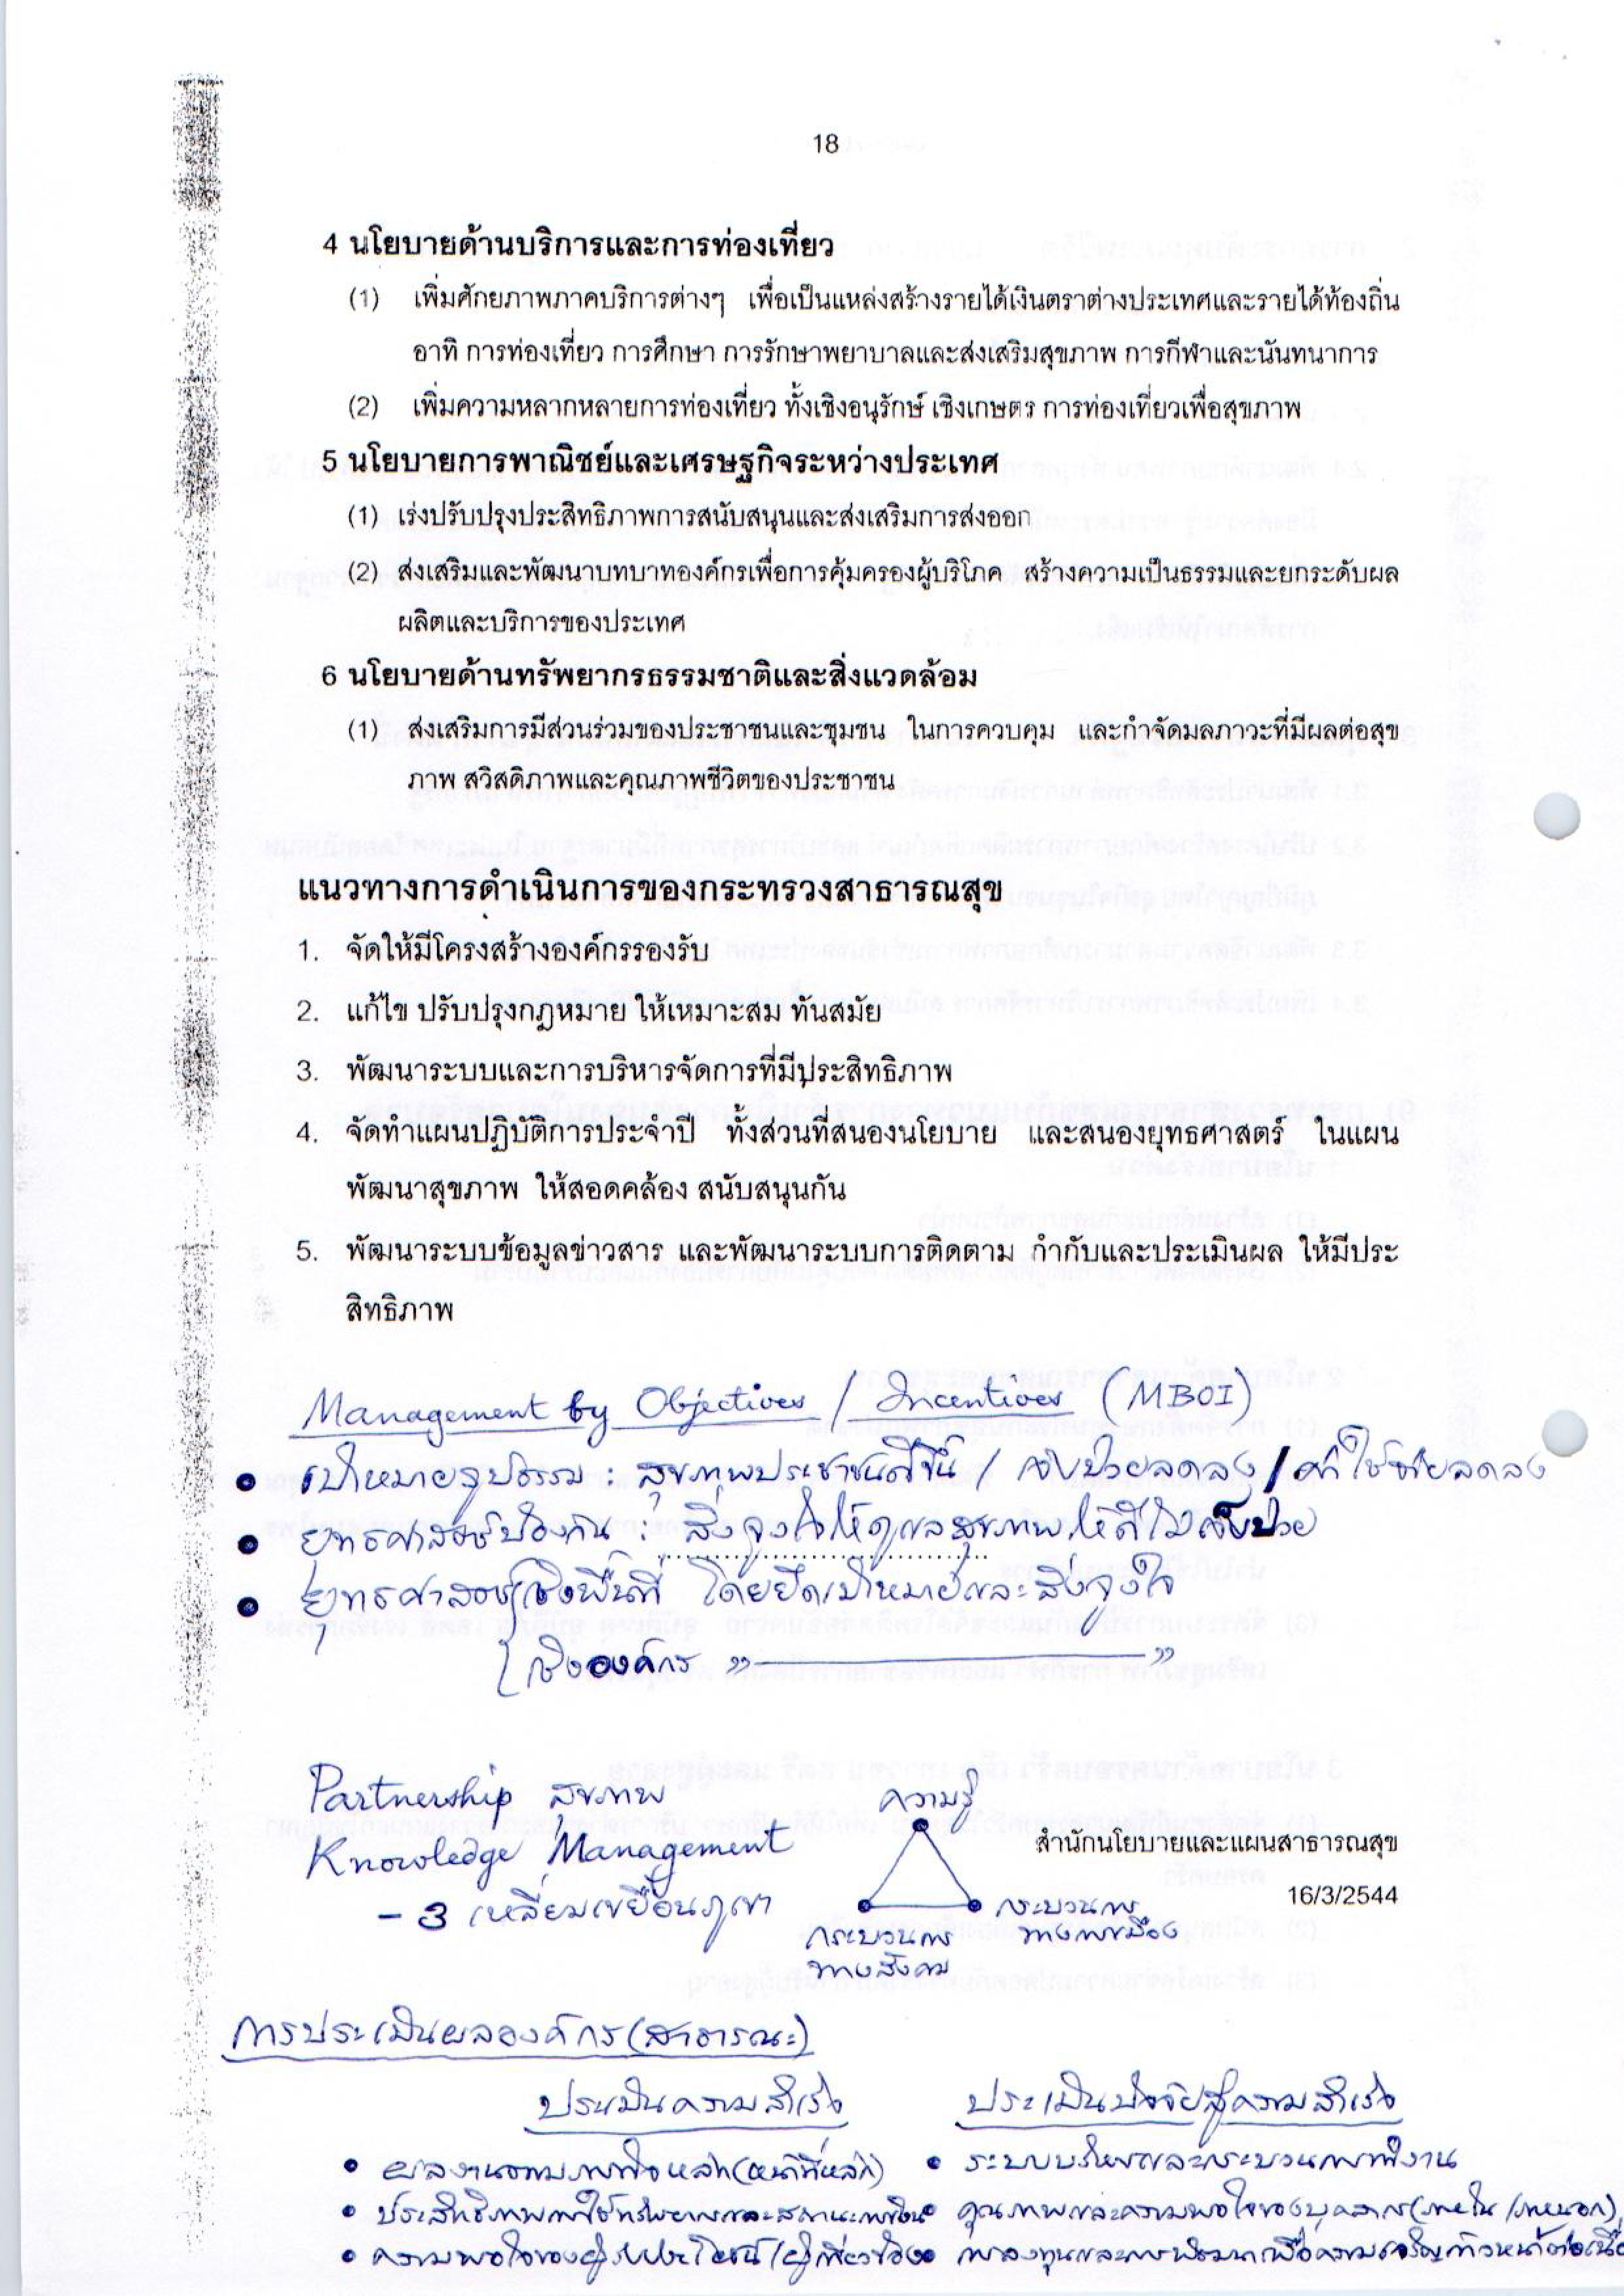 18
4 นโยบายด้านบริการและการท่องเที่ยว
(1) เพิ่มศักยภาพภาคบริการต่างๆ เพื่อเป็นแหล่งสร้างรายได้เงินตราต่างประเทศและรายได้ท้องถิ่น
อาทิ การท่องเที่ยว การศึกษา การรักษาพยาบาลและส่งเสริมสุขภาพ การกีฬาและนันทนาการ
(2) เพิ่มความหลากหลายการท่องเที่ยว ทั้งเชิงอนุรักษ์ เชิงเกษตร การท่องเที่ยวเพื่อสุขภาพ
5 นโยบายการพาณิชย์และเศรษฐกิจระหว่างประเทศ
(1) เร่งปรับปรุงประสิทธิภาพการสนับสนุนและส่งเสริมการส่งออก
(2) ส่งเสริมและพัฒนาบทบาทองค์กรเพื่อการคุ้มครองผู้บริโภค สร้างความเป็นธรรมและยกระดับผล
ผลิตและบริการของประเทศ
6 นโยบายด้านทรัพยากรธรรมชาติและสิ่งแวดล้อม
(1) ส่งเสริมการมีส่วนร่วมของประชาชนและชุมชน ในการควบคุม และกำจัดมลภาวะที่มีผลต่อสุข
ภาพ สวัสดิภาพและคุณภาพชีวิตของประชาชน
แนวทางการดำเนินการของกระทรวงสาธารณสุข
1. จัดให้มีโครงสร้างองค์กรรองรับ
2. แก้ไข ปรับปรุงกฎหมาย ให้เหมาะสม ทันสมัย
3. พัฒนาระบบและการบริหารจัดการที่มีประสิทธิภาพ
4. จัดทำแผนปฏิบัติการประจำปี ทั้งส่วนที่สนองนโยบาย และสนองยุทธศาสตร์ ในแผน
พัฒนาสุขภาพ ให้สอดคล้อง สนับสนุนกัน
5. พัฒนาระบบข้อมูลข่าวสาร และพัฒนาระบบการติดตาม กำกับและประเมินผล ให้มีประ
สิทธิภาพ
Management by Objectives / Incentives (MBOI)
• เป้าหมายรูปธรรม : สุขภาพประชาชนดีขึ้น / เจ็บป่วยลดลง / ค่าใช้จ่ายลดลง
• ยุทธศาสตร์ป้องกัน : สิ่งจูงใจให้ดูแลสุขภาพให้ดีไม่เจ็บป่วย
• ยุทธศาสตร์เชิงพื้นที่ โดยยึดเป้าหมายและสิ่งจูงใจ
เชิงองค์กร " ——— "
Partnership สุขภาพ
Knowledge Management
- 3 เหลี่ยมเขยื้อนภูเขา
ความรู้
กระบวนการ
ทางสังคม
กระบวนการ
ทางการเมือง
สำนักนโยบายและแผนสาธารณสุข
16/3/2544
การประเมินผลองค์กร (สาธารณะ)
ประเมินความสำเร็จ
• ผลงานตามภารกิจหลัก (หน้าที่หลัก)
• ประสิทธิภาพการใช้ทรัพยากรและสถานะการเงิน
• ความพอใจของผู้รับประโยชน์ / ผู้เกี่ยวข้อง
ประเมินปัจจัยสู่ความสำเร็จ
• ระบบบริหารและกระบวนการทำงาน
• คุณภาพและความพอใจของบุคลากร (ภายใน / ภายนอก)
• การลงทุนและการพัฒนาเพื่อความเจริญก้าวหน้าต่อเนื่อ